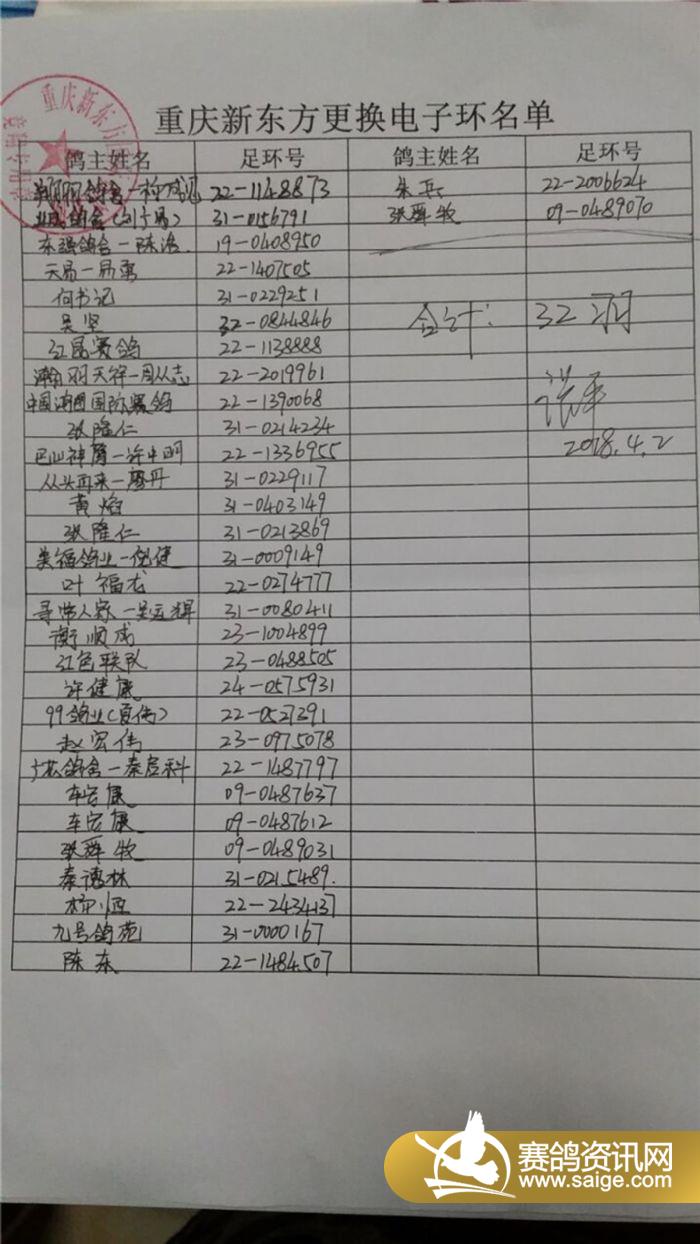 重庆新东方更换电子环名单
鸽主姓名 足环号 鸽主姓名 足环号
22-1148873 朱兵 22-2006624
31-0156791 张舜牧 09-0489070
东强鸽舍一陈浩 19-0408950
天易一易勇 22-1407505
何书记 31-0229251
吴坚 32-0844846 合计: 32羽
红昌赛鸽 22-1138888
瀚羽天祥一周从志 22-2019961
中国湘园国际赛鸽 22-1390068
张隆仁 31-0214234
巴山神鹰一许中明 22-1336955 2018.4.2
从头再来一廖丹 31-0229117
黄焰 31-0403149
张隆仁 31-0213869
美福鸽业一倪健 31-0009149
叶福龙 22-0274777
寻常人家一吴远辉 31-0080411
衡顺成 23-1004899
红色联队 23-0488505
许健康 24-0575931
99鸽业(夏伟) 22-0527391
赵宏伟 23-0975078
鸽舍一秦启科 22-1487797
车宏康 09-0487637
车宏康 09-0487612
张舜牧 09-0489031
秦德林 31-0215489.
柳恒 22-2434137
九号鸽苑 31-0000167
陈东 22-1484507
赛鸽资讯网
www.saige.com